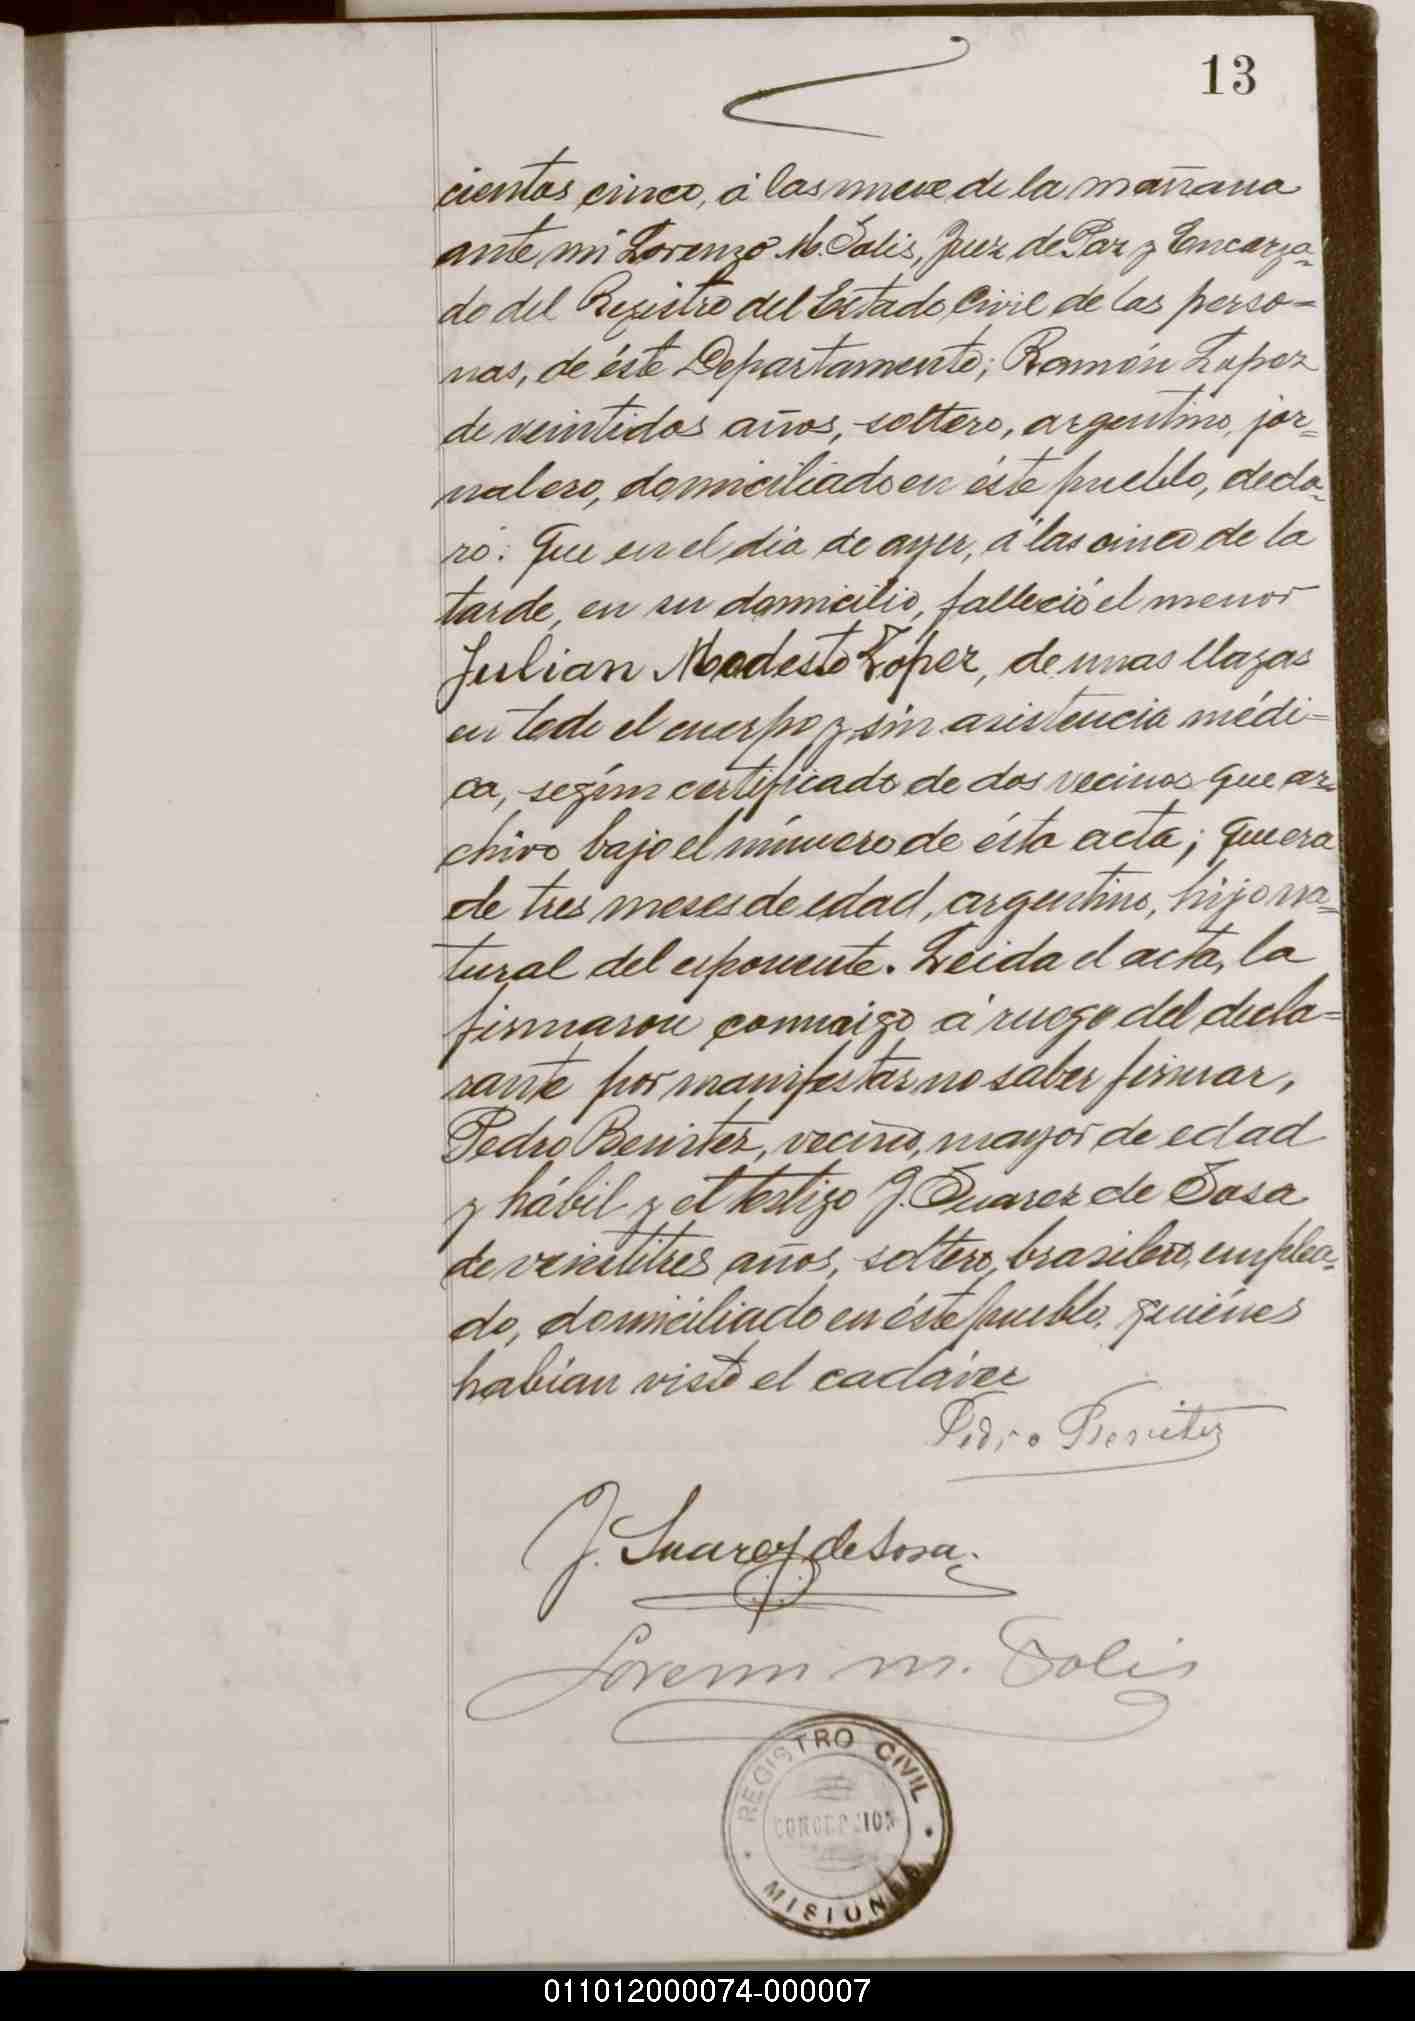 13
cientos cinco, á las nueve de la mañana
ante mi Lorenzo M. Solis, Juez de Paz y Encarga=
do del Registro del Estado Civil de las perso=
nas, de éste Departamento; Ramón Lopez
de veintidos años, soltero, argentino, jor=
nalero, domiciliado en éste pueblo, decla=
ró: Que en el dia de ayer, á las cinco de la
tarde, en su domicilio, falleció el menor
Julian Modesto Lopez, de unas llagas
en todo el cuerpo y sin asistencia médi=
ca, según certificado de dos vecinos que ar=
chivo bajo el número de ésta acta; que era
de tres meses de edad, argentino, hijo na=
tural del esponente. Leida el acta, la
firmaron conmigo á ruego del decla=
rante por manifestar no saber firmar,
Pedro Benitez, vecino, mayor de edad
y hábil y el testigo J. Suarez de Sosa
de veintitres años, soltero, brasilero, emplea=
do, domiciliado en éste pueblo, quiénes
habían visto el cadáver
Pedro Benitez
J. Suarez de Sosa.
Lorenzo M. Solis
REGISTRO CIVIL
CONCEPCION
MISIONES
011012000074-000007